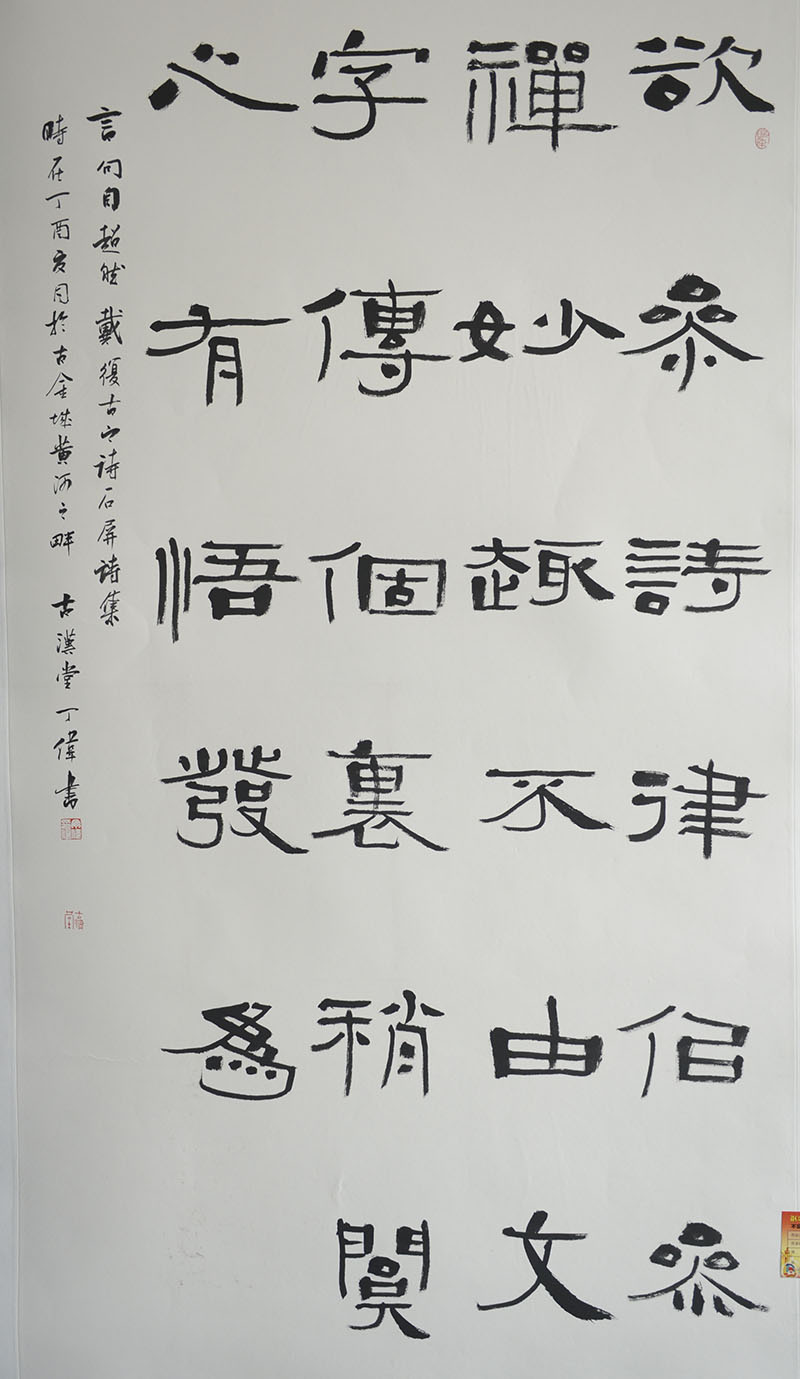 欲參詩律佀參
禪妙趣不由文
字傳個裏稍關
心有悟發爲
言句自超然 戴復古之诗石屏诗集
時在丁酉夏月於古金城黄河之畔 古漢堂丁偉書